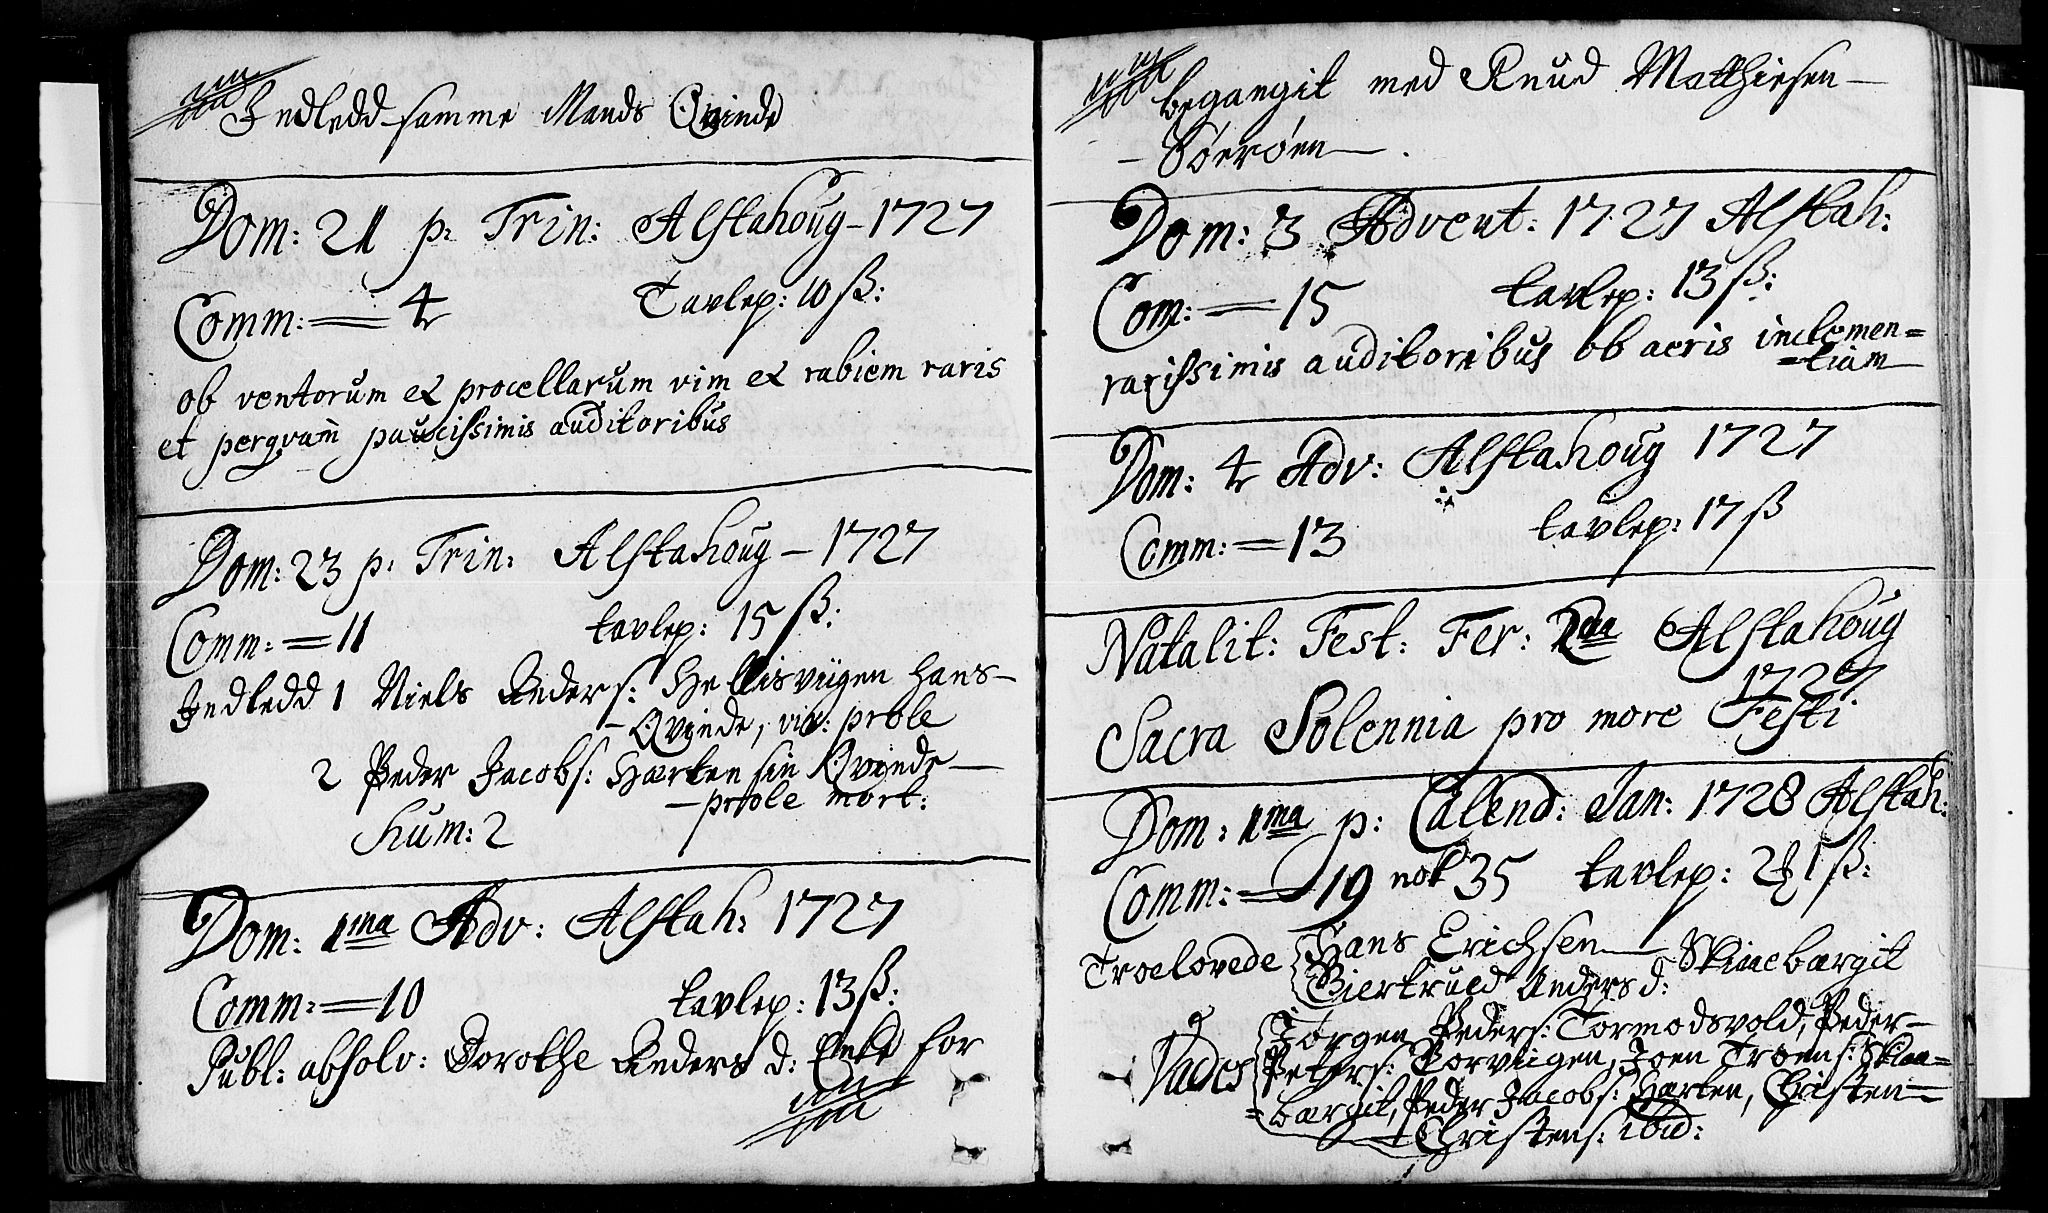 Indledd samme Mands Qvinde
Dom: 21 p. Trin: Alstahoug - 1727
Comm: = 4 Tavlep: 10 ß:
ob ventorum et procellarum vim et rabiem raris
et perqvam paucissimis auditoribus
Dom: 23 p. Trin: Alstahoug - 1727
Comm: = 11 tavlep: 15 ß:
Indledd 1 Niels Anders: Hellisviigen hans -
- Qvinde, viv: prole
2 Peder Jacobs: Hærten sin Qvinde -
- prole mort:
hum: 2
Dom: 1ma Adv: Alstah: 1727
Comm: = 10 tavlep: 13 ß:
Publ: absolv: Dorothe Anders d: Enke for
begangit med Knud Matthiesen -
- Sørrøen - .
Dom: 3 Advent: 1727 Alstah:
Com: = 15 tavlep: 13 ß:
rarissimis auditoribus ob aeris inclemen=
=tiam
Dom: 4 Adv: Alstahoug 1727
Comm: = 13 tavlep: 17 ß
Natalit: Fest: Fer: 2da Alstahoug
1727
Sacra Solennia pro more Festi
Dom: 1ma p: Calend: Jan: 1728 Alstah:
Comm: = 19 nok 35 tavlep: 2 1 ß:
Troelovede Hans Erichsen - Skinebærgit
Giertrued Anders d:
Vades Jørgen Peders: Tormodsvold, Peder -
Peters: Torviigen, Joen Troens: Skine=
=bærgit, Peder Jacobs: Hærten, Christen -
- Christens: ibid: